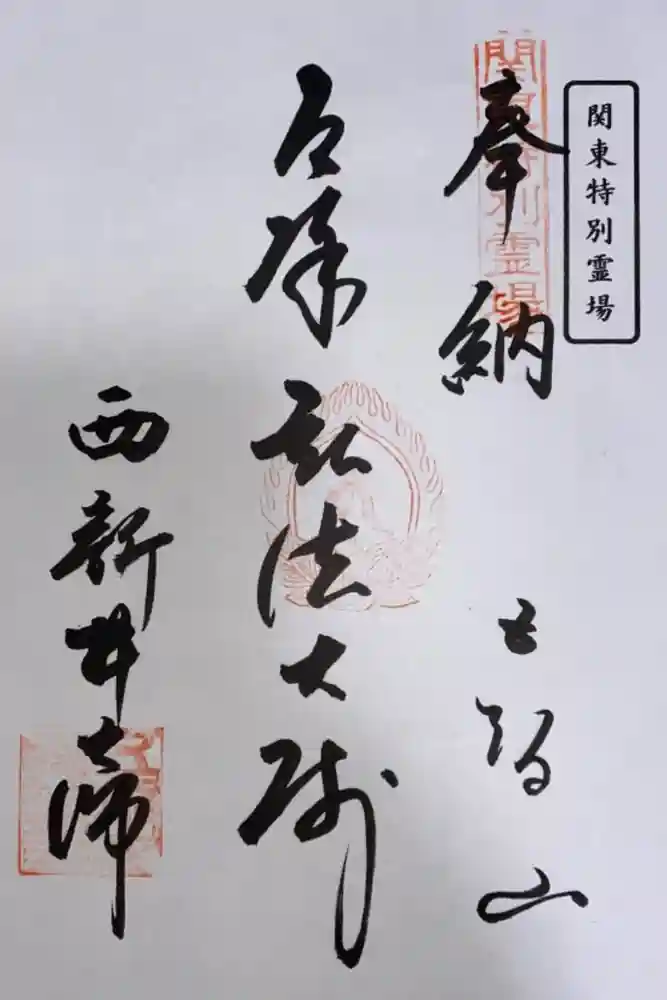 関東特別霊場
関東特別霊場
奉納
五智山
厄除弘法大師
西新井大師